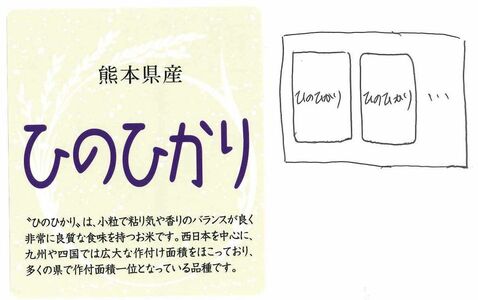 熊本県産
ひのひかり
〝ひのひかり〟は、小粒で粘り気や香りのバランスが良く
非常に良質な食味を持つお米です。西日本を中心に、
九州や四国では広大な作付け面積をほこっており、
多くの県で作付面積一位となっている品種です。
ひのひかり
ひのひかり
...